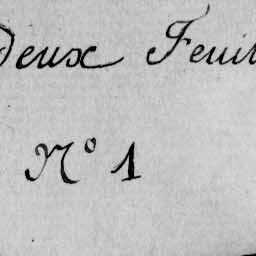 Deux Feuil
N° 1